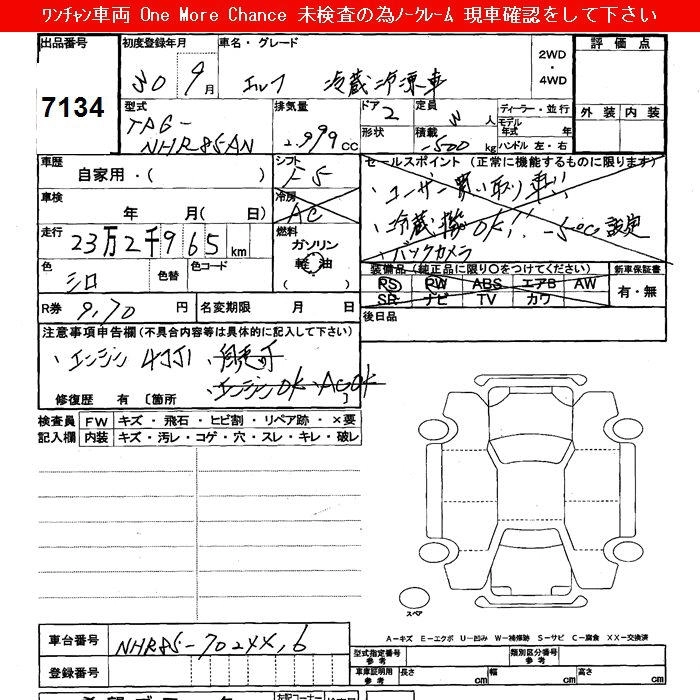 ﾜﾝﾁｬﾝ車両 One More Chance 未検査の為ﾉｰｸﾚｰﾑ 現車確認をして下さい
出品番号
7134
初度登録年月
30 9月
車名・グレード
エルフ 冷蔵冷凍車
2WD
・
4WD
評価点
外装 内装
型式
TPG-
NHR85AN
排気量
2.999cc
ドア
2
形状
定員
人
積載
-500kg
ディーラー・並行
モデル
年式 年
ハンドル 左・右
車歴
自家用・( )
シフト
F5
車検
年 月(日 )
冷房
AC
走行
23万2千965km
燃料
ガソリン
軽油
( )
色
シロ
色替
色コード
R券
9,170円
名変期限 月 日
セールスポイント (正常に機能するものに限ります)
・ユーザー買い取り車!!
・冷蔵機OK!! -5℃設定
・バックカメラ
装備品(純正品に限り〇をつけてください)
PS PW ABS エアB AW
SR ナビ TV カワ
新車保証書
有・無
後日品
注意事項申告欄(不具合内容等は具体的に記入して下さい)
・エンジン 4JJ1
・エンジンOK・ACOK
修復歴 有 〔箇所 〕
検査員
記入欄
FW キズ・飛石・ヒビ割・リペア跡・×要
内装 キズ・汚レ・コゲ・穴・スレ・キレ・破レ
スペア
A-キズ E-エクボ U-凹み W-補修跡 S-サビ C-腐食 XX-交換済
車台番号
NHR85-702XX,6
登録番号
型式指定番号
参考
類別区分番号
参考
車庫証明用
参考
長さ cm
幅 cm
高さ cm
左記コーナー